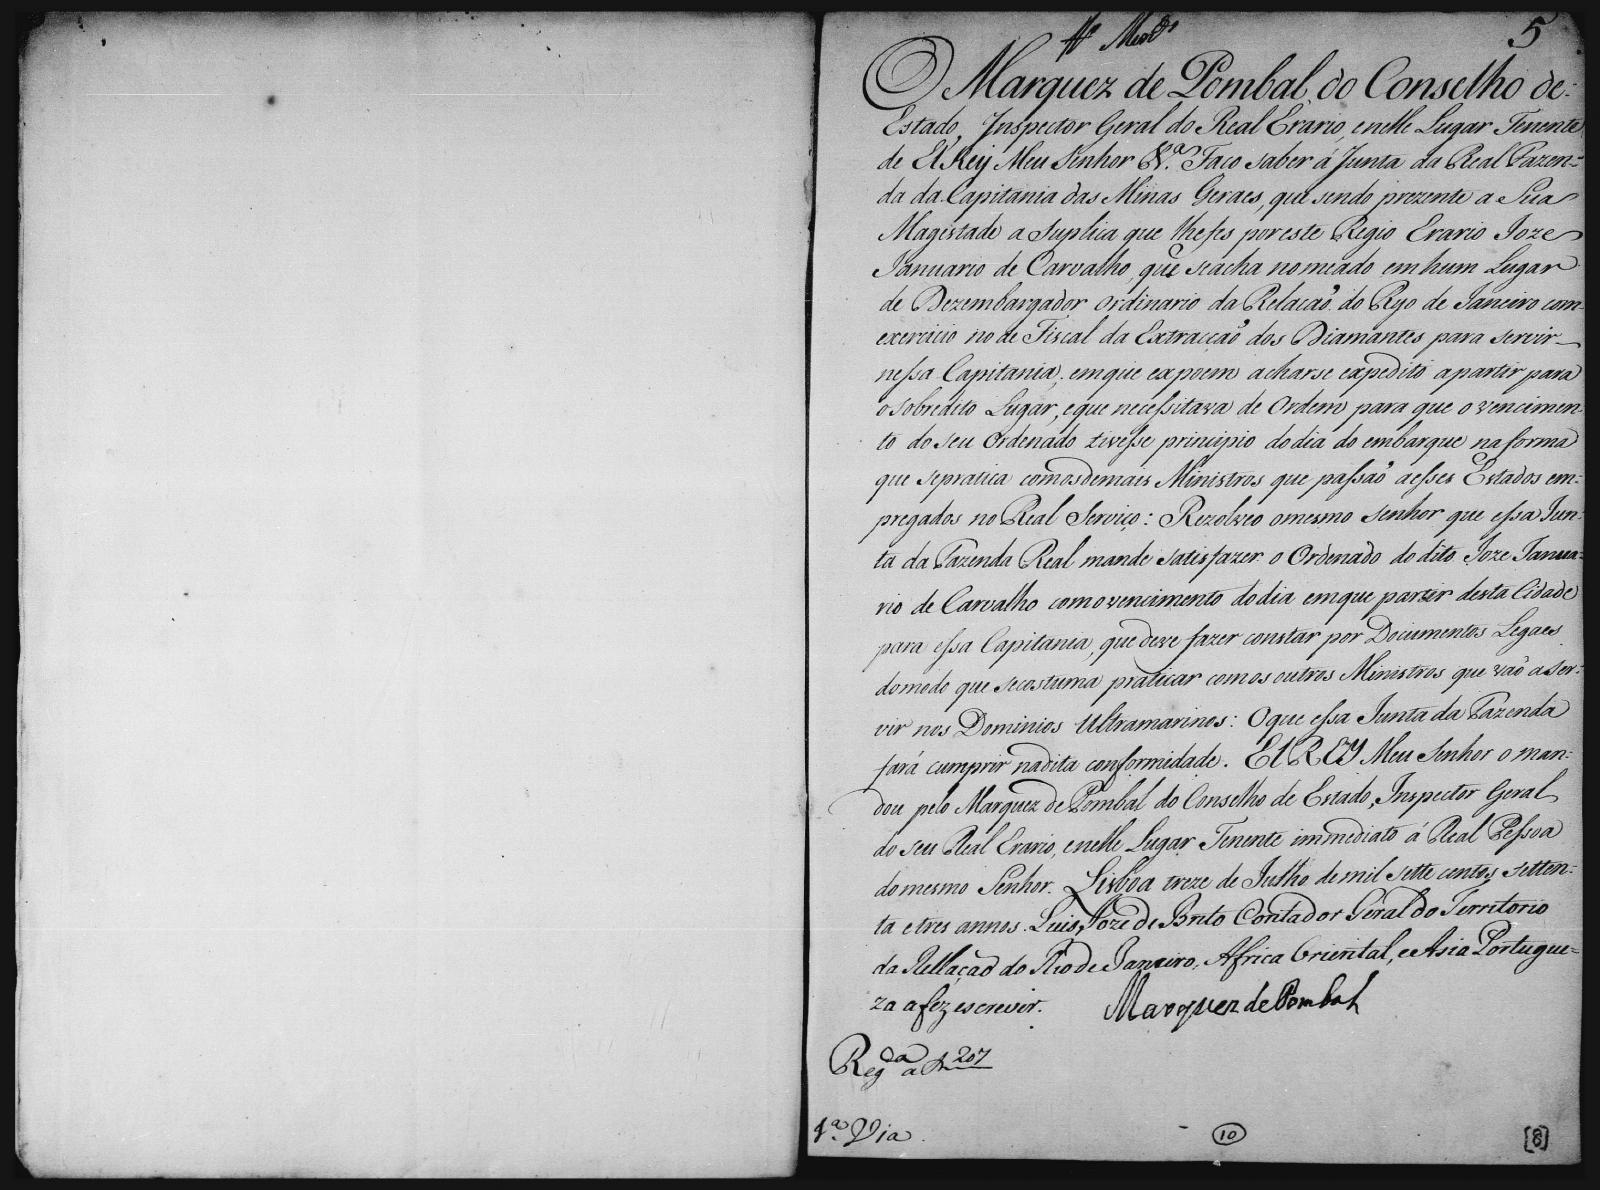 5
O Marquez de Pombal, do Conselho de=
Estado, Inspector Geral do Real Erario, enelle Lugar Tenente
de ElRey Meu Senhor &.ª Faco saber á Junta da Real Fazen=
da da Capitania das Minas Geraes, que sendo prezente a Sua
Magestade a Suplica que lhefes poreste Regio Erario Joze
Januario de Carvalho, que seacha nomeado emhum Lugar
de Dezembargador ordinario da Relacaõ do Ryo de Janeiro com
exercicio no de Fiscal da Extracçaõ dos Diamantes para servir
nessa Capitania; emque expoem acharse expedito apartir para
osobredito Lugar, eque necessitava de Ordem para que o vencimen=
to do seu Ordenado tivesse principio dodia do embarque naforma
que sepratica comosdemais Ministros que passaõ aesses Estados em=
pregados no Real Serviço: Rezolveo omesmo Senhor que essa Jun=
ta da Fazenda Real mande satisfazer o Ordenado do dito Joze Janua=
rio de Carvalho comovencimento dodia emque partir desta Cidade
para essa Capitania, que deve fazer constar por Documentos Legaes
domodo que secostuma praticar comos outros Ministros que vaõ aser=
vir nos Dominios Ultramarinos: Oque essa Junta da Fazenda
fará cumprir nadita conformidade. El REY Meu Senhor o man=
dou pelo Marquez de Pombal do Conselho de Estado, Inspector Geral
do seu Real Erario, enelle Lugar Tenente immediato á Real Pessoa
domesmo Senhor. Lisboa treze de Julho de mil sette centos setten=
ta etres annos. Luis Joze de Brito Contador Geral do Territorio
da Rellaçaõ do Rio de Janeiro, Africa Oriental, eAsia Portugue=
za afez escrever.
Marquez de Pombal
Regda a f 207
1.ª Via
10
[8]